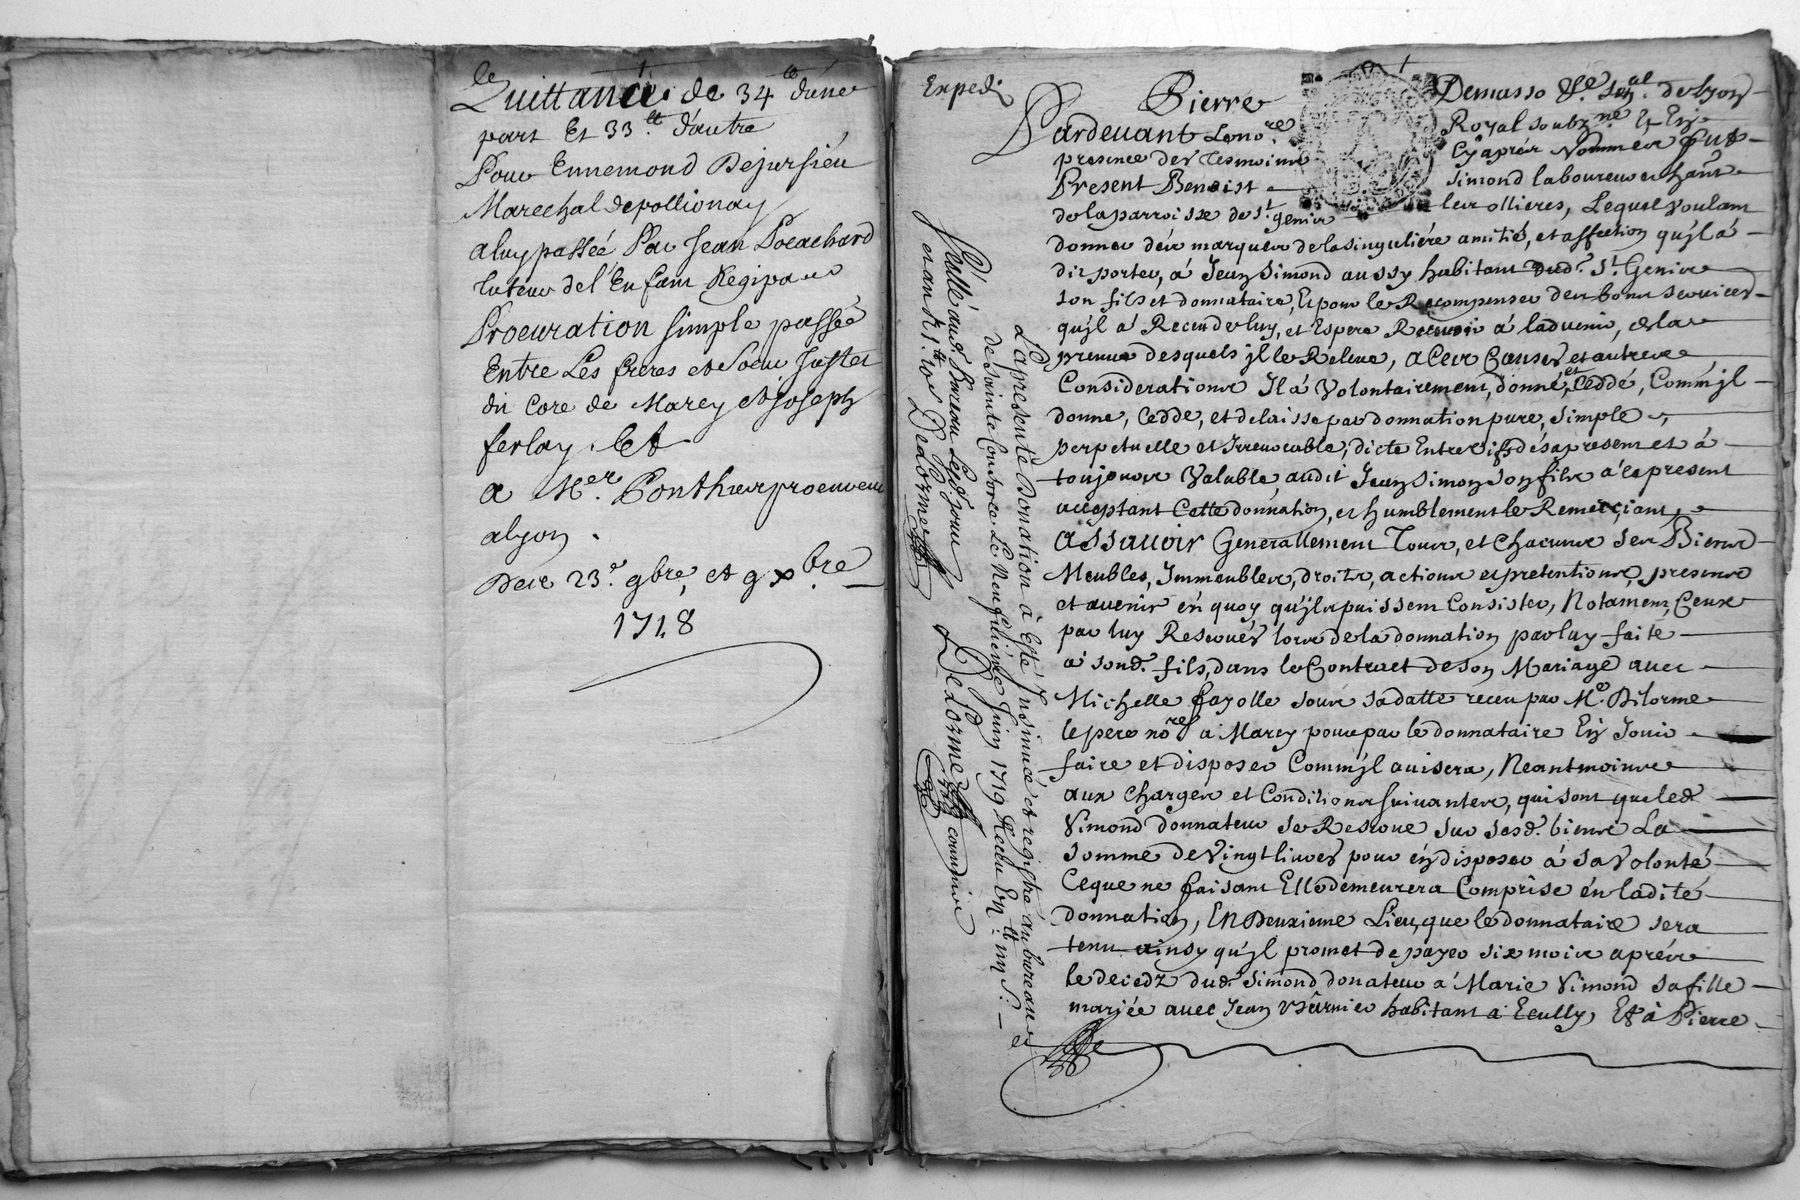 Quittance de 34ᵗᵗ d'une
part Et 33ᵗᵗ d'autre
Pour Ennemond Dejursieu
Marechal de pollionay
a luy passée Par Jean
tuteur de l'Enfant
Procuration simple passée
Entre Les freres et soeur
de Marcy et joseph
ferlay. Et
a Mer. Ponthus procureur
a lyon.
Des 23e 9bre, et 9 xbre
1718
Exped.
Pierre Demasso Se. Senal. de lyon
Pardevant Le nore Royal soubzne Et En
presence des tesmoins Cy apres Nommes fut
Present Benoist Simond laboureur habitt
de la parroisse de St genis les ollieres, Lequel voulant
donner des marques de la singuliére amitié, et affection qu'jl à
dit porter, à Jean Simond aussy habitant dudt St. Genis
son fils et donnataire, Et pour le Recompenser des bons services
qu'jl à Receu de luy, et Espere Recevoir à ladvenir, de la
preuve desquels jl le Releve, a Ces Causes et autres
Considerations Il à Volontairement, donné, et Ceddé, Comm'jl
donne, Cedde, et delaisse par donnation pure, simple
perpetuelle et Irrevocable, dicte Entre vifs dés a present et à
toujours Valable, audit Jean Simon son fils à ce present
acceptant Cette donnation, et humblement le Remerciant,
Assavoir Generallement Tous, et Chacuns ses Biens
Meubles, Immeubles, droits, actions et pretentions, presens
et avenir en quoy qu'jls puissent Consister, Notament, Ceux
par luy Reservés lors de la donnation par luy faite
à sond. fils, dans le Contract de son Mariage avec
Michelle fayolle sous sa datte receu par Me. Delorme
le pere nore à Marcy pour par le donnataire En Jouir
faire et disposer Comm'jl avisera, Neantmoins
aux Charges et Conditions suivantes, qui sont que led.
Simond donnateur se Reserve sur sesd. biens La
somme de vingt livres pour en disposer à sa Volonté
Ce que ne faisant Elle demeurera Comprise en ladite
donnation, En Deuxieme Lieu, que le donnataire sera
tenu ainsy qu'jl promet de payer six mois aprés
le decedz dud. Simond donateur à Marie Simond sa fille
mariée avec Jean habitant à Ecully, Et à Pierre
La presente Donation à Este Insinuée et registré au bureau
de Sainte Coulombe Le Neufvieme Juin 1719 Receu
Delorme
Delorme